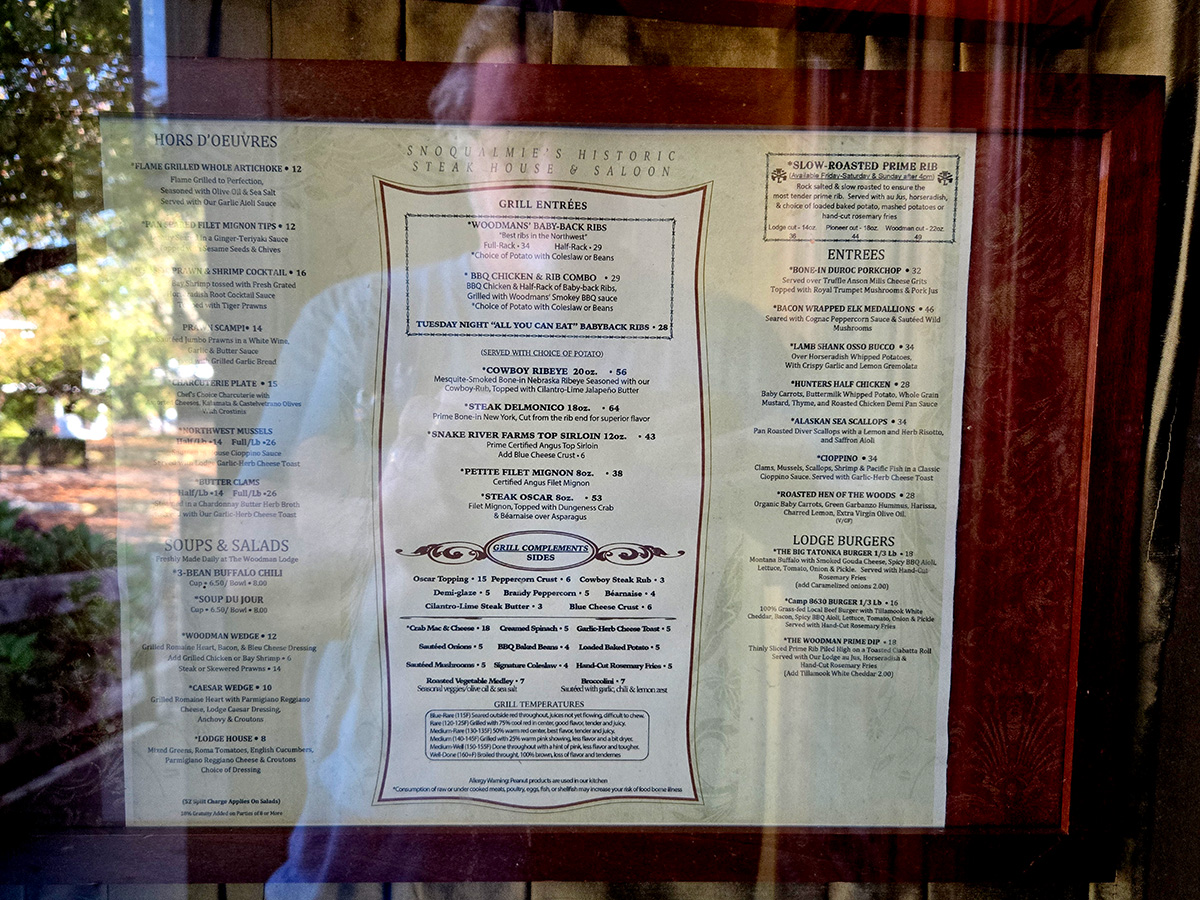 HORS D'OEUVRES
*FLAME GRILLED WHOLE ARTICHOKE • 12
Flame Grilled to Perfection,
Seasoned with Olive Oil & Sea Salt
Served with Our Garlic Aioli Sauce
FILET MIGNON TIPS • 12
in a Ginger-Teriyaki Sauce
Sesame Seeds & Chives
PRAWN & SHRIMP COCKTAIL • 16
Bay Shrimp tossed with Fresh Grated
Root Cocktail Sauce
with Tiger Prawns
PRAWN SCAMPI• 14
Jumbo Prawns in a White Wine,
Garlic & Butter Sauce
Grilled Garlic Bread
*CHARCUTERIE PLATE • 15
Chef's Choice Charcuterie with
Cheeses, Kalamata & Castelvetrano Olives
Crostinis
*NORTHWEST MUSSELS
Half/Lb •14 Full/Lb •26
Cioppino Sauce
Garlic-Herb Cheese Toast
*BUTTER CLAMS
Half/Lb •14 Full/Lb •26
in a Chardonnay Butter Herb Broth
with Our Garlic-Herb Cheese Toast
SOUPS & SALADS
Freshly Made Daily at The Woodman Lodge
*3-BEAN BUFFALO CHILI
Cup • 6.50/ Bowl • 8.00
*SOUP DU JOUR
Cup • 6.50/ Bowl • 8.00
*WOODMAN WEDGE • 12
Grilled Romaine Heart, Bacon, & Bleu Cheese Dressing
Add Grilled Chicken or Bay Shrimp • 6
Steak or Skewered Prawns • 14
*CAESAR WEDGE • 10
Grilled Romaine Heart with Parmigiano Reggiano
Cheese, Lodge Caesar Dressing,
Anchovy & Croutons
*LODGE HOUSE • 8
Mixed Greens, Roma Tomatoes, English Cucumbers,
Parmigiano Reggiano Cheese & Croutons
Choice of Dressing
($2 Split Charge Applies On Salads)
Gratuity Added on Parties of 8 or More
SNOQUALMIE'S HISTORIC
STEAK HOUSE & SALOON
GRILL ENTRÉES
*WOODMANS' BABY-BACK RIBS
"Best ribs in the Northwest"
Full-Rack • 34 Half-Rack • 29
*Choice of Potato with Coleslaw or Beans
* BBQ CHICKEN & RIB COMBO • 29
BBQ Chicken & Half-Rack of Baby-back Ribs,
Grilled with Woodmans' Smokey BBQ sauce
*Choice of Potato with Coleslaw or Beans
TUESDAY NIGHT "ALL YOU CAN EAT" BABYBACK RIBS • 28
(SERVED WITH CHOICE OF POTATO)
*COWBOY RIBEYE 20oz. • 56
Mesquite-Smoked Bone-in Nebraska Ribeye Seasoned with our
Cowboy-Rub, Topped with Cilantro-Lime Jalapeño Butter
*STEAK DELMONICO 18oz. • 64
Prime Bone-in New York, Cut from the rib end for superior flavor
*SNAKE RIVER FARMS TOP SIRLOIN 12oz. • 43
Prime Certified Angus Top Sirloin
Add Blue Cheese Crust • 6
*PETITE FILET MIGNON 8oz. • 38
Certified Angus Filet Mignon
*STEAK OSCAR 8oz. • 53
Filet Mignon, Topped with Dungeness Crab
& Béarnaise over Asparagus
GRILL COMPLEMENTS
SIDES
Oscar Topping • 15 Peppercorn Crust • 6 Cowboy Steak Rub • 3
Demi-glaze • 5 Brandy Peppercorn • 5 Béarnaise • 4
Cilantro-Lime Steak Butter • 3 Blue Cheese Crust • 6
*Crab Mac & Cheese • 18 Creamed Spinach • 5 Garlic-Herb Cheese Toast • 5
Sautéed Onions • 5 BBQ Baked Beans • 4 Loaded Baked Potato • 5
Sautéed Mushrooms • 5 Signature Coleslaw • 4 Hand-Cut Rosemary Fries • 5
Roasted Vegetable Medley • 7 Broccolini • 7
Seasonal veggies/olive oil & sea salt Sautéed with garlic, chili & lemon zest
GRILL TEMPERATURES
Blue-Rare (115F) Seared outside red throughout, juices not yet flowing, difficult to chew.
Rare (120-125F) Grilled with 75% cool red in center, good flavor, tender and juicy.
Medium-Rare (130-135F) 50% warm red center, best flavor, tender and juicy.
Medium (140-145F) Grilled with 25% warm pink showing, less flavor and a bit dryer.
Medium-Well (150-155F) Done throughout with a hint of pink, less flavor and tougher.
Well-Done (160+F) Broiled throught, 100% brown, loss of flavor and tenderness
Allergy Warning: Peanut products are used in our kitchen
*Consumption of raw or under cooked meats, poultry, eggs, fish, or shellfish may increase your risk of food borne illness
*SLOW-ROASTED PRIME RIB
(Available Friday-Saturday & Sunday after 4pm)
Rock salted & slow roasted to ensure the
most tender prime rib. Served with au Jus, horseradish,
& choice of loaded baked potato, mashed potatoes or
hand-cut rosemary fries
Lodge cut - 14oz. Pioneer cut - 18oz. Woodman cut - 22oz
36 44 49
ENTREES
*BONE-IN DUROC PORKCHOP • 32
Served over Truffle Anson Mills Cheese Grits
Topped with Royal Trumpet Mushrooms & Pork Jus
*BACON WRAPPED ELK MEDALLIONS • 46
Seared with Cognac Peppercorn Sauce & Sautéed Wild
Mushrooms
*LAMB SHANK OSSO BUCCO • 34
Over Horseradish Whipped Potatoes,
With Crispy Garlic and Lemon Gremolata
*HUNTERS HALF CHICKEN • 28
Baby Carrots, Buttermilk Whipped Potato, Whole Grain
Mustard, Thyme, and Roasted Chicken Demi Pan Sauce
*ALASKAN SEA SCALLOPS • 34
Pan Roasted Diver Scallops with a Lemon and Herb Risotto,
and Saffron Aioli
*CIOPPINO • 34
Clams, Mussels, Scallops, Shrimp & Pacific Fish in a Classic
Cioppino Sauce. Served with Garlic-Herb Cheese Toast
*ROASTED HEN OF THE WOODS • 28
Organic Baby Carrots, Green Garbanzo Hummus, Harissa,
Charred Lemon, Extra Virgin Olive Oil.
(V/GF)
LODGE BURGERS
*THE BIG TATONKA BURGER 1/3 Lb • 18
Montana Buffalo with Smoked Gouda Cheese, Spicy BBQ Aioli,
Lettuce, Tomato, Onion & Pickle. Served with Hand-Cut
Rosemary Fries
(add Caramelized onions 2.00)
*Camp 8630 BURGER 1/3 Lb • 16
100% Grass-fed Local Beef Burger with Tillamook White
Cheddar, Bacon, Spicy BBQ Aioli, Lettuce, Tomato, Onion & Pickle
Served with Hand-Cut Rosemary Fries
*THE WOODMAN PRIME DIP • 18
Thinly Sliced Prime Rib Piled High on a Toasted Ciabatta Roll
Served with Our Lodge au Jus, Horseradish &
Hand-Cut Rosemary Fries
(Add Tillamook White Cheddar 2.00)